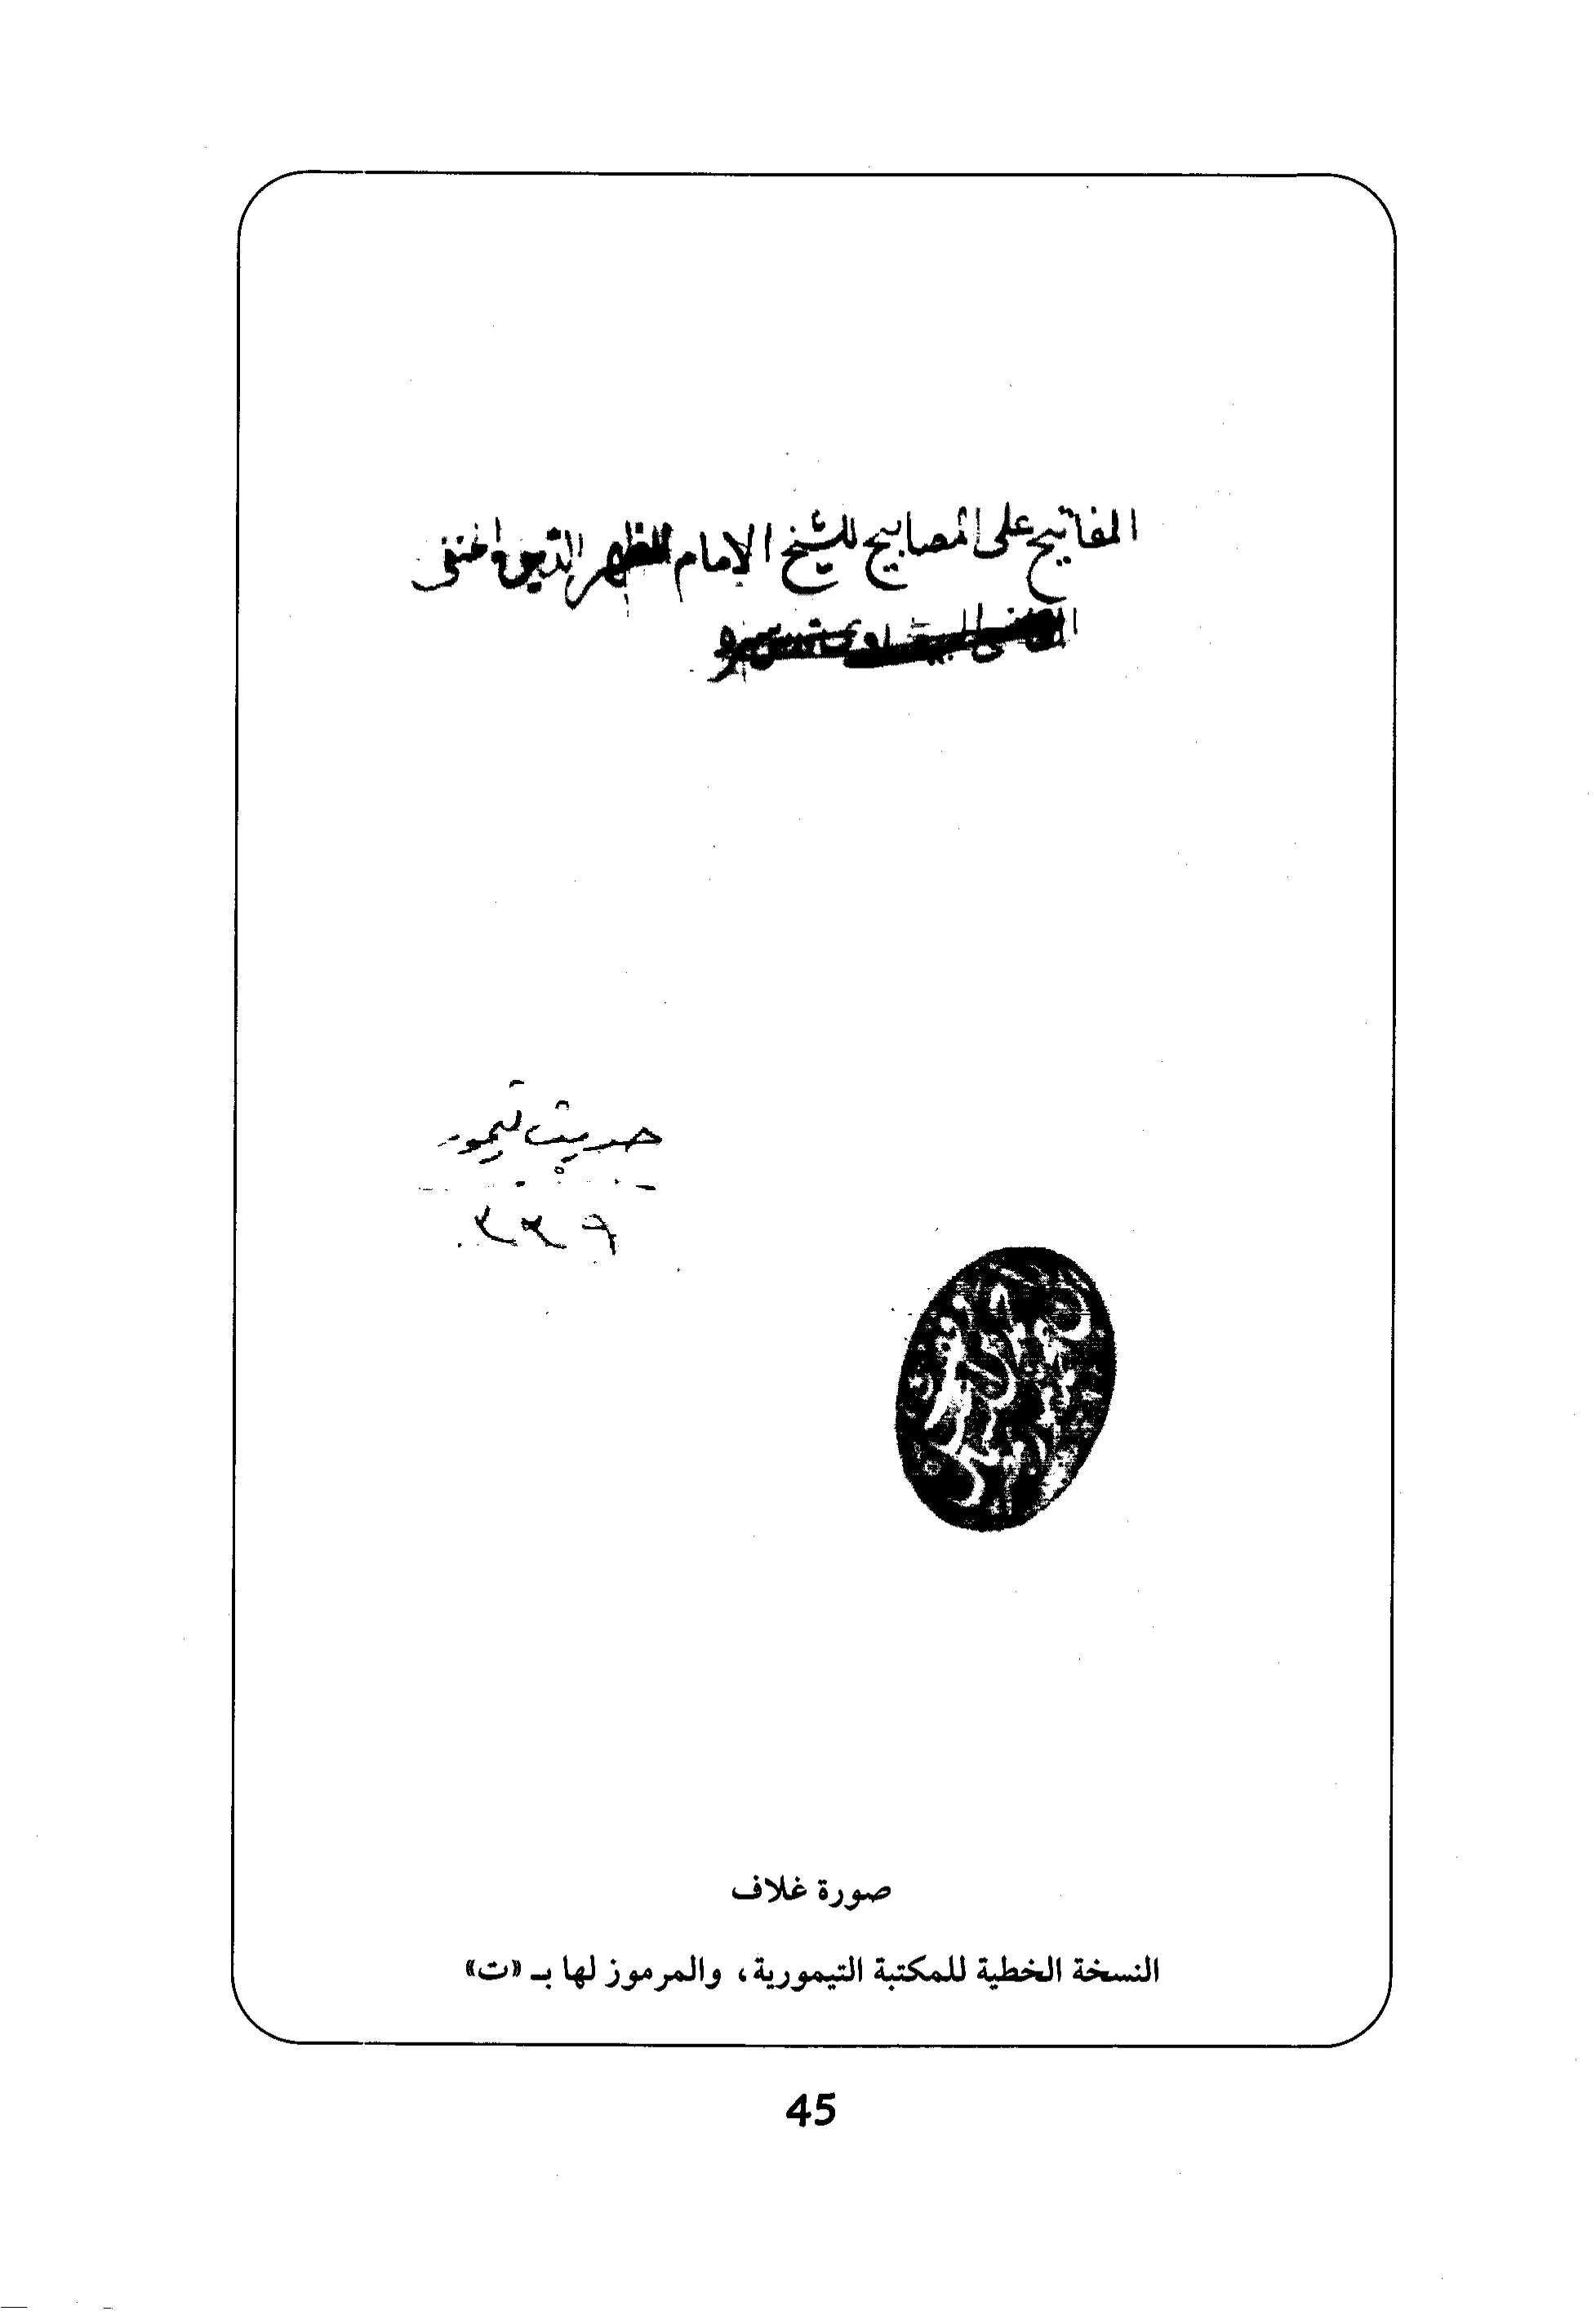 المفاتيح على المصابيح للشيخ الإمام المظهر الدين الحنفى
حديث تيمور
صورة غلاف
النسخة الخطية للمكتبة التيمورية، والمرموز لها بـ «ت»
45